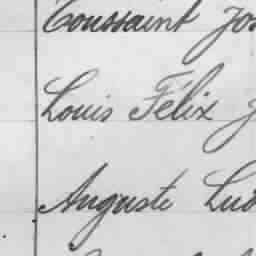 Toussaint Jos
Louis Félix J
Auguste Lud